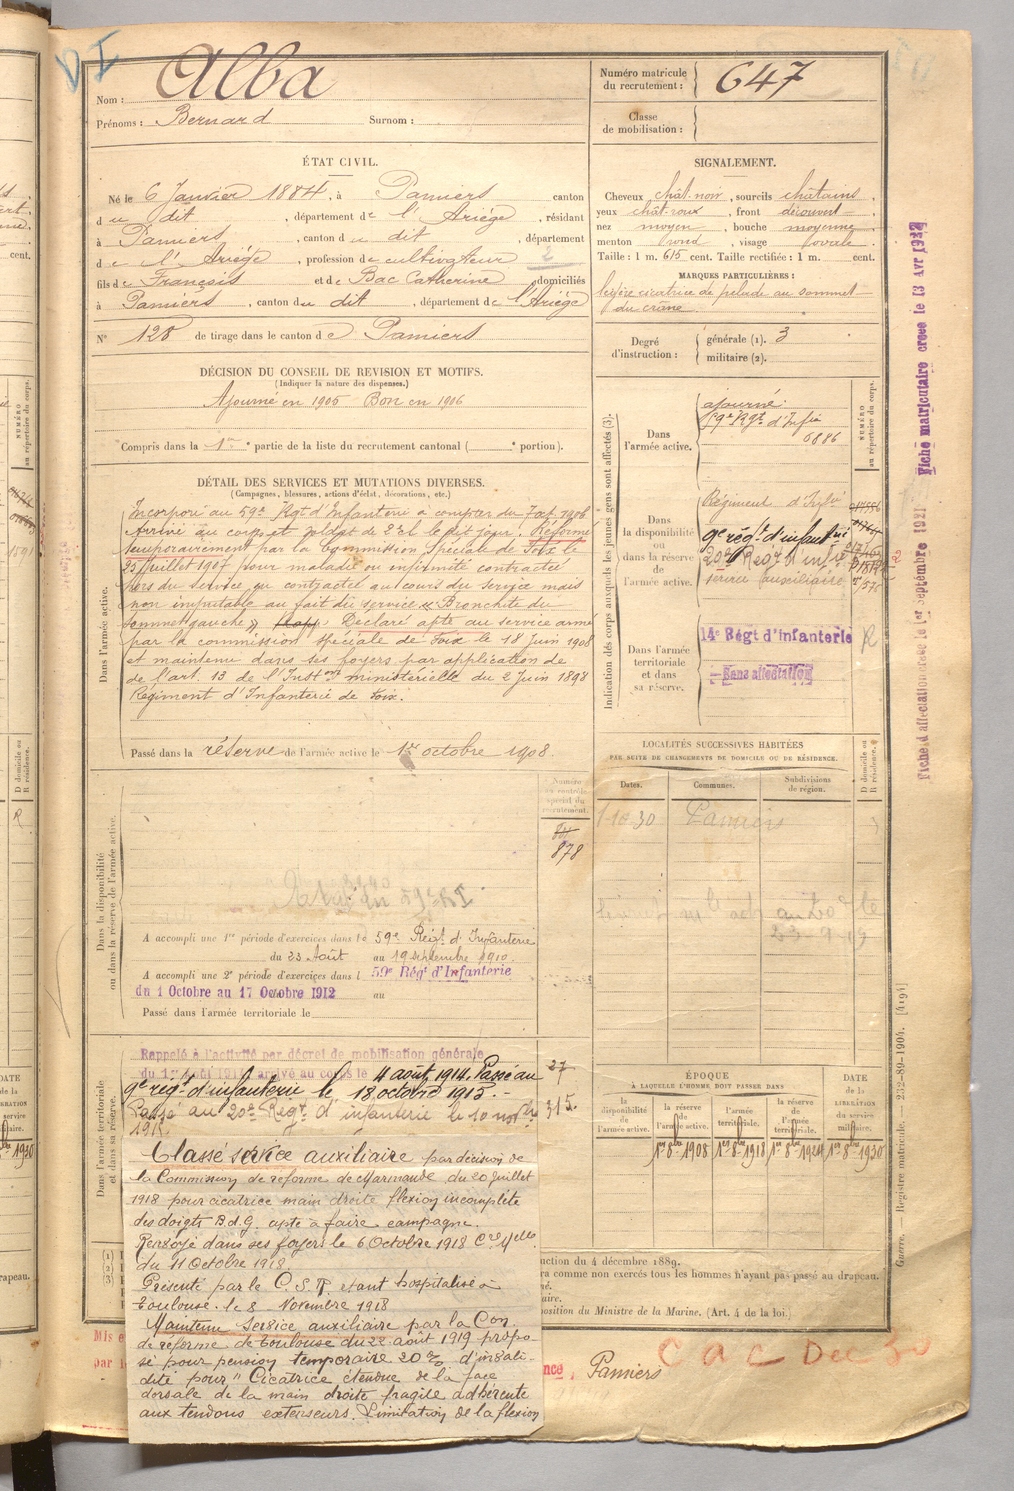 DI
Nom : Alba
Prénoms : Bernard Surnom :
Numéro matricule du recrutement : 647
Classe de mobilisation :
ÉTAT CIVIL.
Né le 6 Janvier 1884, à Pamiers canton
du dit, département de l'Ariège, résidant
à Pamiers, canton du dit, département
de l'Ariège, profession de cultivateur 2
fils de François et de Bac Catherine domiciliés
à Pamiers, canton du dit, département de l'Ariège
N° 128 de tirage dans le canton de Pamiers
SIGNALEMENT.
Cheveux chât-noir, sourcils châtains
yeux chât-roux, front découvert
nez moyen, bouche moyenne
menton rond, visage ovale
Taille : 1 m. 615 cent. Taille rectifiée : 1 m. cent.
MARQUES PARTICULIÈRES :
légère cicatrice de pelade au sommet
du crâne
Degré d'instruction : générale (1). 3
militaire (2).
DÉCISION DU CONSEIL DE REVISION ET MOTIFS.
(Indiquer la nature des dispenses.)
Ajourné en 1905 Bon en 1906
Compris dans la 1re partie de la liste du recrutement cantonal ( e portion).
DÉTAIL DES SERVICES ET MUTATIONS DIVERSES.
(Campagnes, blessures, actions d'éclat, décorations, etc.)
Dans l'armée active.
Incorporé au 59e Régt d'Infanterie à compter du 7 8bre 1906
Arrivé au corps et soldat de 2e cl le dit jour. Réformé
temporairement par la Commission Spéciale de Foix le
25 Juillet 1907 pour maladie ou infirmité contractée
hors du service ou contractée au cours du service mais
non imputable au fait du service « Bronchite du
sommet gauche » Déclaré apte au service armé
par la commission spéciale de Foix le 18 Juin 1908
et maintenu dans ses foyers par application de
de l'art. 13 de l'Inston ministérielle du 2 Juin 1898
Régiment d'Infanterie de Foix.
Passé dans la réserve de l'armée active le 1er octobre 1908.
Indication des corps auxquels les jeunes gens sont affectés (3).
NUMÉRO au répertoire du corps.
Dans l'armée active.
ajourné
59e Régt d'Infie
6886
Dans la disponibilité ou dans la réserve de l'armée active.
Régiment d'Infie
9e régt d'infantrie
20e Régt d'infie
service auxiliaire
Dans l'armée territoriale et dans sa réserve.
14e Régt d'Infanterie R
Sans affectation
LOCALITÉS SUCCESSIVES HABITÉES
PAR SUITE DE CHANGEMENTS DE DOMICILE OU DE RÉSIDENCE.
Dates. Communes. Subdivisions de région. D domicile ou R résidence.
1-10-30 Pamiers
23-9-19
Dans la disponibilité ou dans la réserve de l'armée active.
Numéro au contrôle spécial du recrutement.
878
A accompli une 1re période d'exercices dans le 59e Régt d'Infanterie
du 23 Août au 19 septembre 1910.
A accompli une 2e période d'exercices dans l 59e Régt d'Infanterie
du 1 Octobre au 17 Octobre 1912 au
Passé dans l'armée territoriale le
Dans l'armée territoriale et dans sa réserve.
Rappelé à l'activité par décret de mobilisation générale
du 1er Août 1914 arrivé au corps le 4 août 1914. Passé au
9e régt d'infanterie le 18 octobre 1915.
Passé au 20e Régt d'infanterie le 10 novbre
1915.
27
315.
Classé service auxiliaire par décision de
la Commission de réforme de Marmande du 20 Juillet
1918 pour cicatrice main droite flexion incomplète
des doigts B.d.G. apte à faire campagne.
Renvoyé dans ses foyers le 6 Octobre 1918 Cre Melle
du 11 Octobre 1918
Présenté par le C.S.R. étant hospitalisé à
Toulouse. le 8 Novembre 1918
Maintenu Service auxiliaire par la Con
de réforme de Toulouse du 22 août 1919 propo-
sé pour pension temporaire 20% d'invali-
dité pour " Cicatrice étendue de la face
dorsale de la main droite fragile adhérente
aux tendons extenseurs. Limitation de la flexion
ÉPOQUE
À LAQUELLE L'HOMME DOIT PASSER DANS
la disponibilité de l'armée active. la réserve de l'armée active. l'armée territoriale. la réserve de l'armée territoriale.
DATE de la LIBÉRATION du service militaire.
1er 8bre 1908 1er 8bre 1918 1er 8bre 1924 1er 8bre 1930
uction du 4 décembre 1889.
ra comme non exercés tous les hommes n'ayant pas passé au drapeau.
position du Ministre de la Marine. (Art. 4 de la loi.)
nce, Pamiers
Cac Dec 30
Mis e
par l
Fiche d'affectation créée le 1er Septembre 1921
Fiche matriculaire créée le 13 Avr 1927
Guerre. — Registre matricule. — 232-89-1904. [4194]